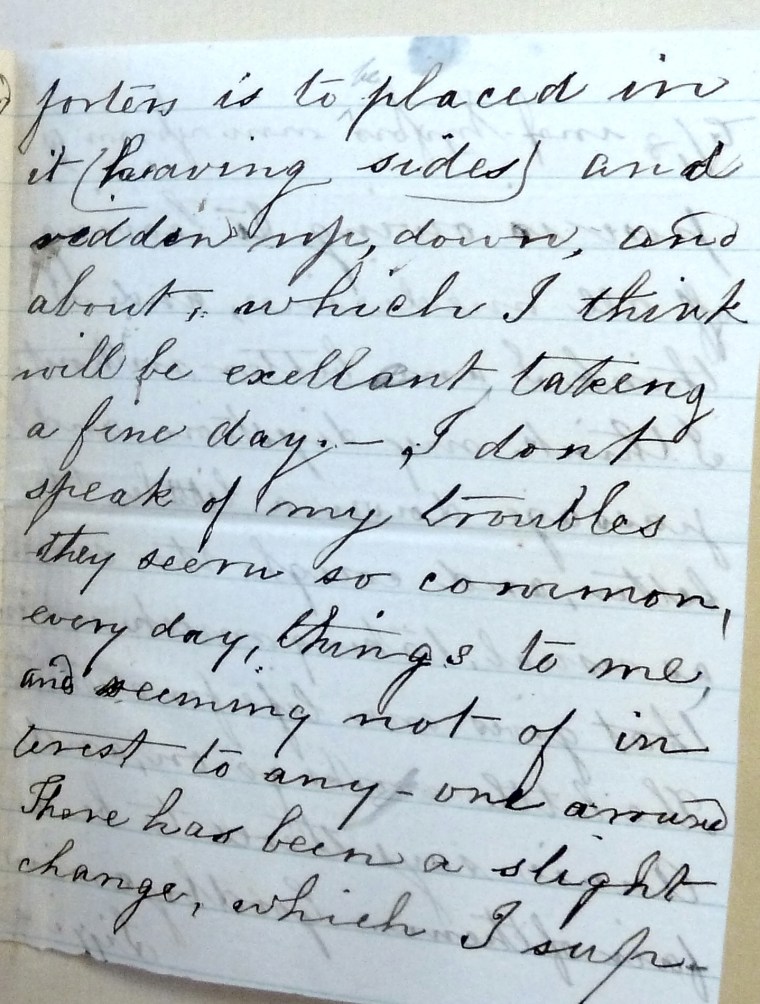 forters is to be placed in
it (haaving sides) and
redden up, down, and
about, which I think
will be exellant, takeng
a fine day. — I dont
speak of my troubles
they seem so common,
every day, things to me,
and seeming not of in
terest to any - one around
There has been a slight
change, which I sup-